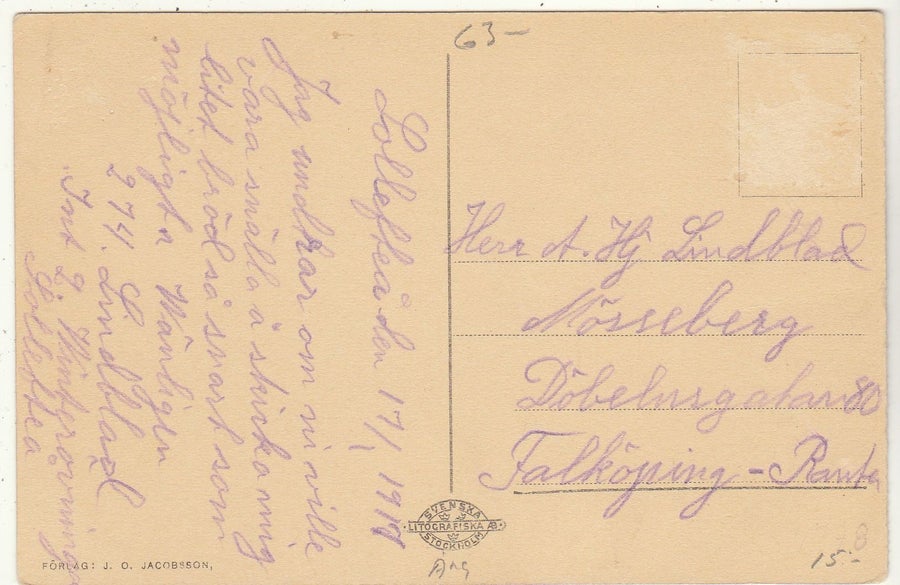 63-
Sollefteå den 17/1 1919
Jag undrar om ni ville
vara snälla å skicka mig
litet bröd så snart som
möjligt. Vänligen
974. Lindblad
Int. 2. Vinterövninga
Sollefteå
Herr A. Hj Lindblad
Mösseberg
Döbelnsgatan 80
Falköping - Ranta
SVENSKA
LITOGRAFISKA AB.
STOCKHOLM
FÖRLAG: J. O. JACOBSSON,
Ång
8
15:-